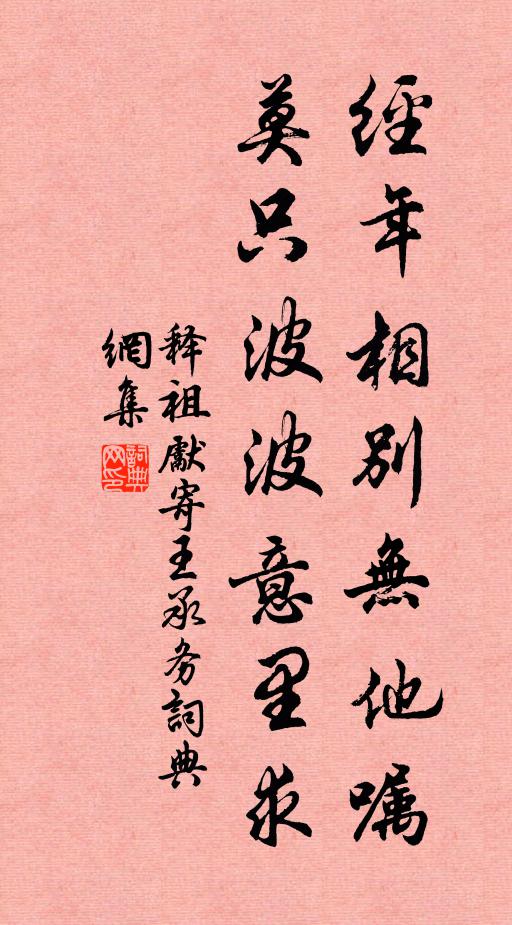 經年相別無他嘱
莫只波波意里求
释祖獻寄王承务詞典
網集
詞典網印